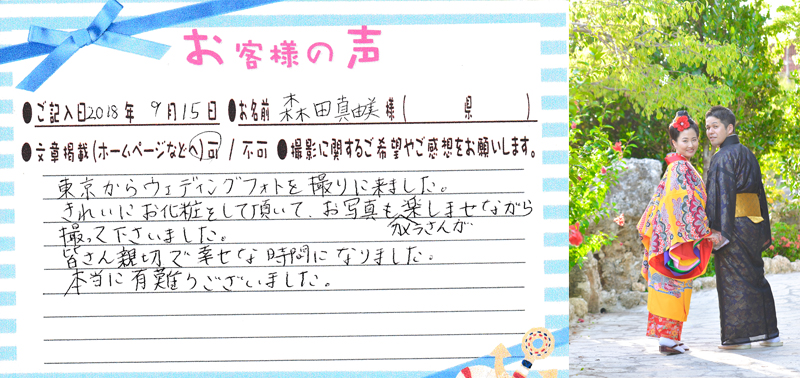 お客様の声
●ご記入日2018年 9月15日 ●お名前 森田真由美 様 ( 県 )
●文章掲載(ホームページなどへ)可 / 不可 ●撮影に関するご希望やご感想をお願いします。
東京からウェディングフォトを撮りに来ました。
きれいにお化粧をして頂いて、お写真も楽しませながら
カメラさんが
撮って下さいました。
皆さん親切で幸せな時間になりました。
本当に有難うございました。